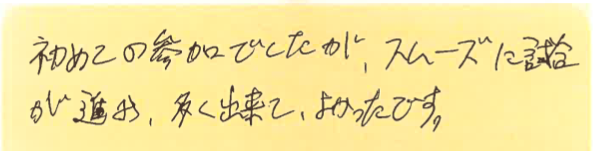 初めての参加でしたが、スムーズに試合
が進み、多く出来て、よかったです。